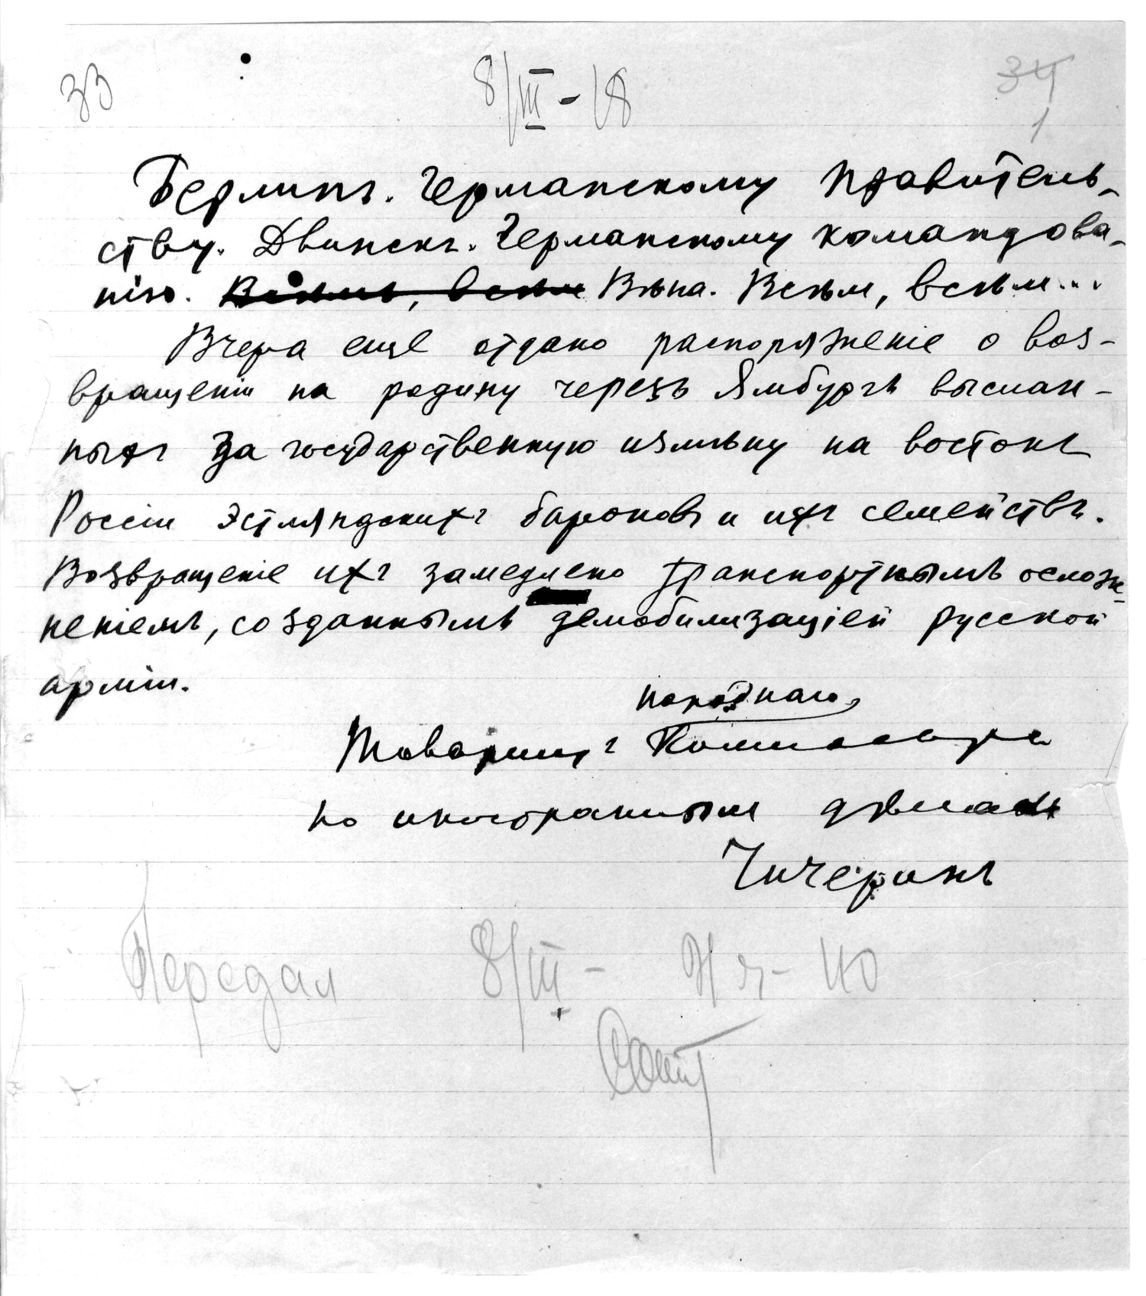 33 8/III-18 34
1
Берлинъ. Германскому Правитель-
ству. Двинскъ. Германскому командова-
нію. Всѣмъ, всѣм Вѣна. Всѣм, всѣм...
Вчера еще отдано распоряженіе о воз-
вращеніи на родину черезъ Ямбургъ выслан-
ныхъ за государственную измѣну на востокъ
Россіи Эстляндскихъ бароновъ и ихъ семействъ.
Возвращеніе ихъ замедлено транспортнымъ ослож-
неніемъ, созданнымъ демобилизаціей русской
арміи.
народнаго
Товарищъ Комиссара
по иностранным дѣламъ
Чичеринъ
Передал 8/III-